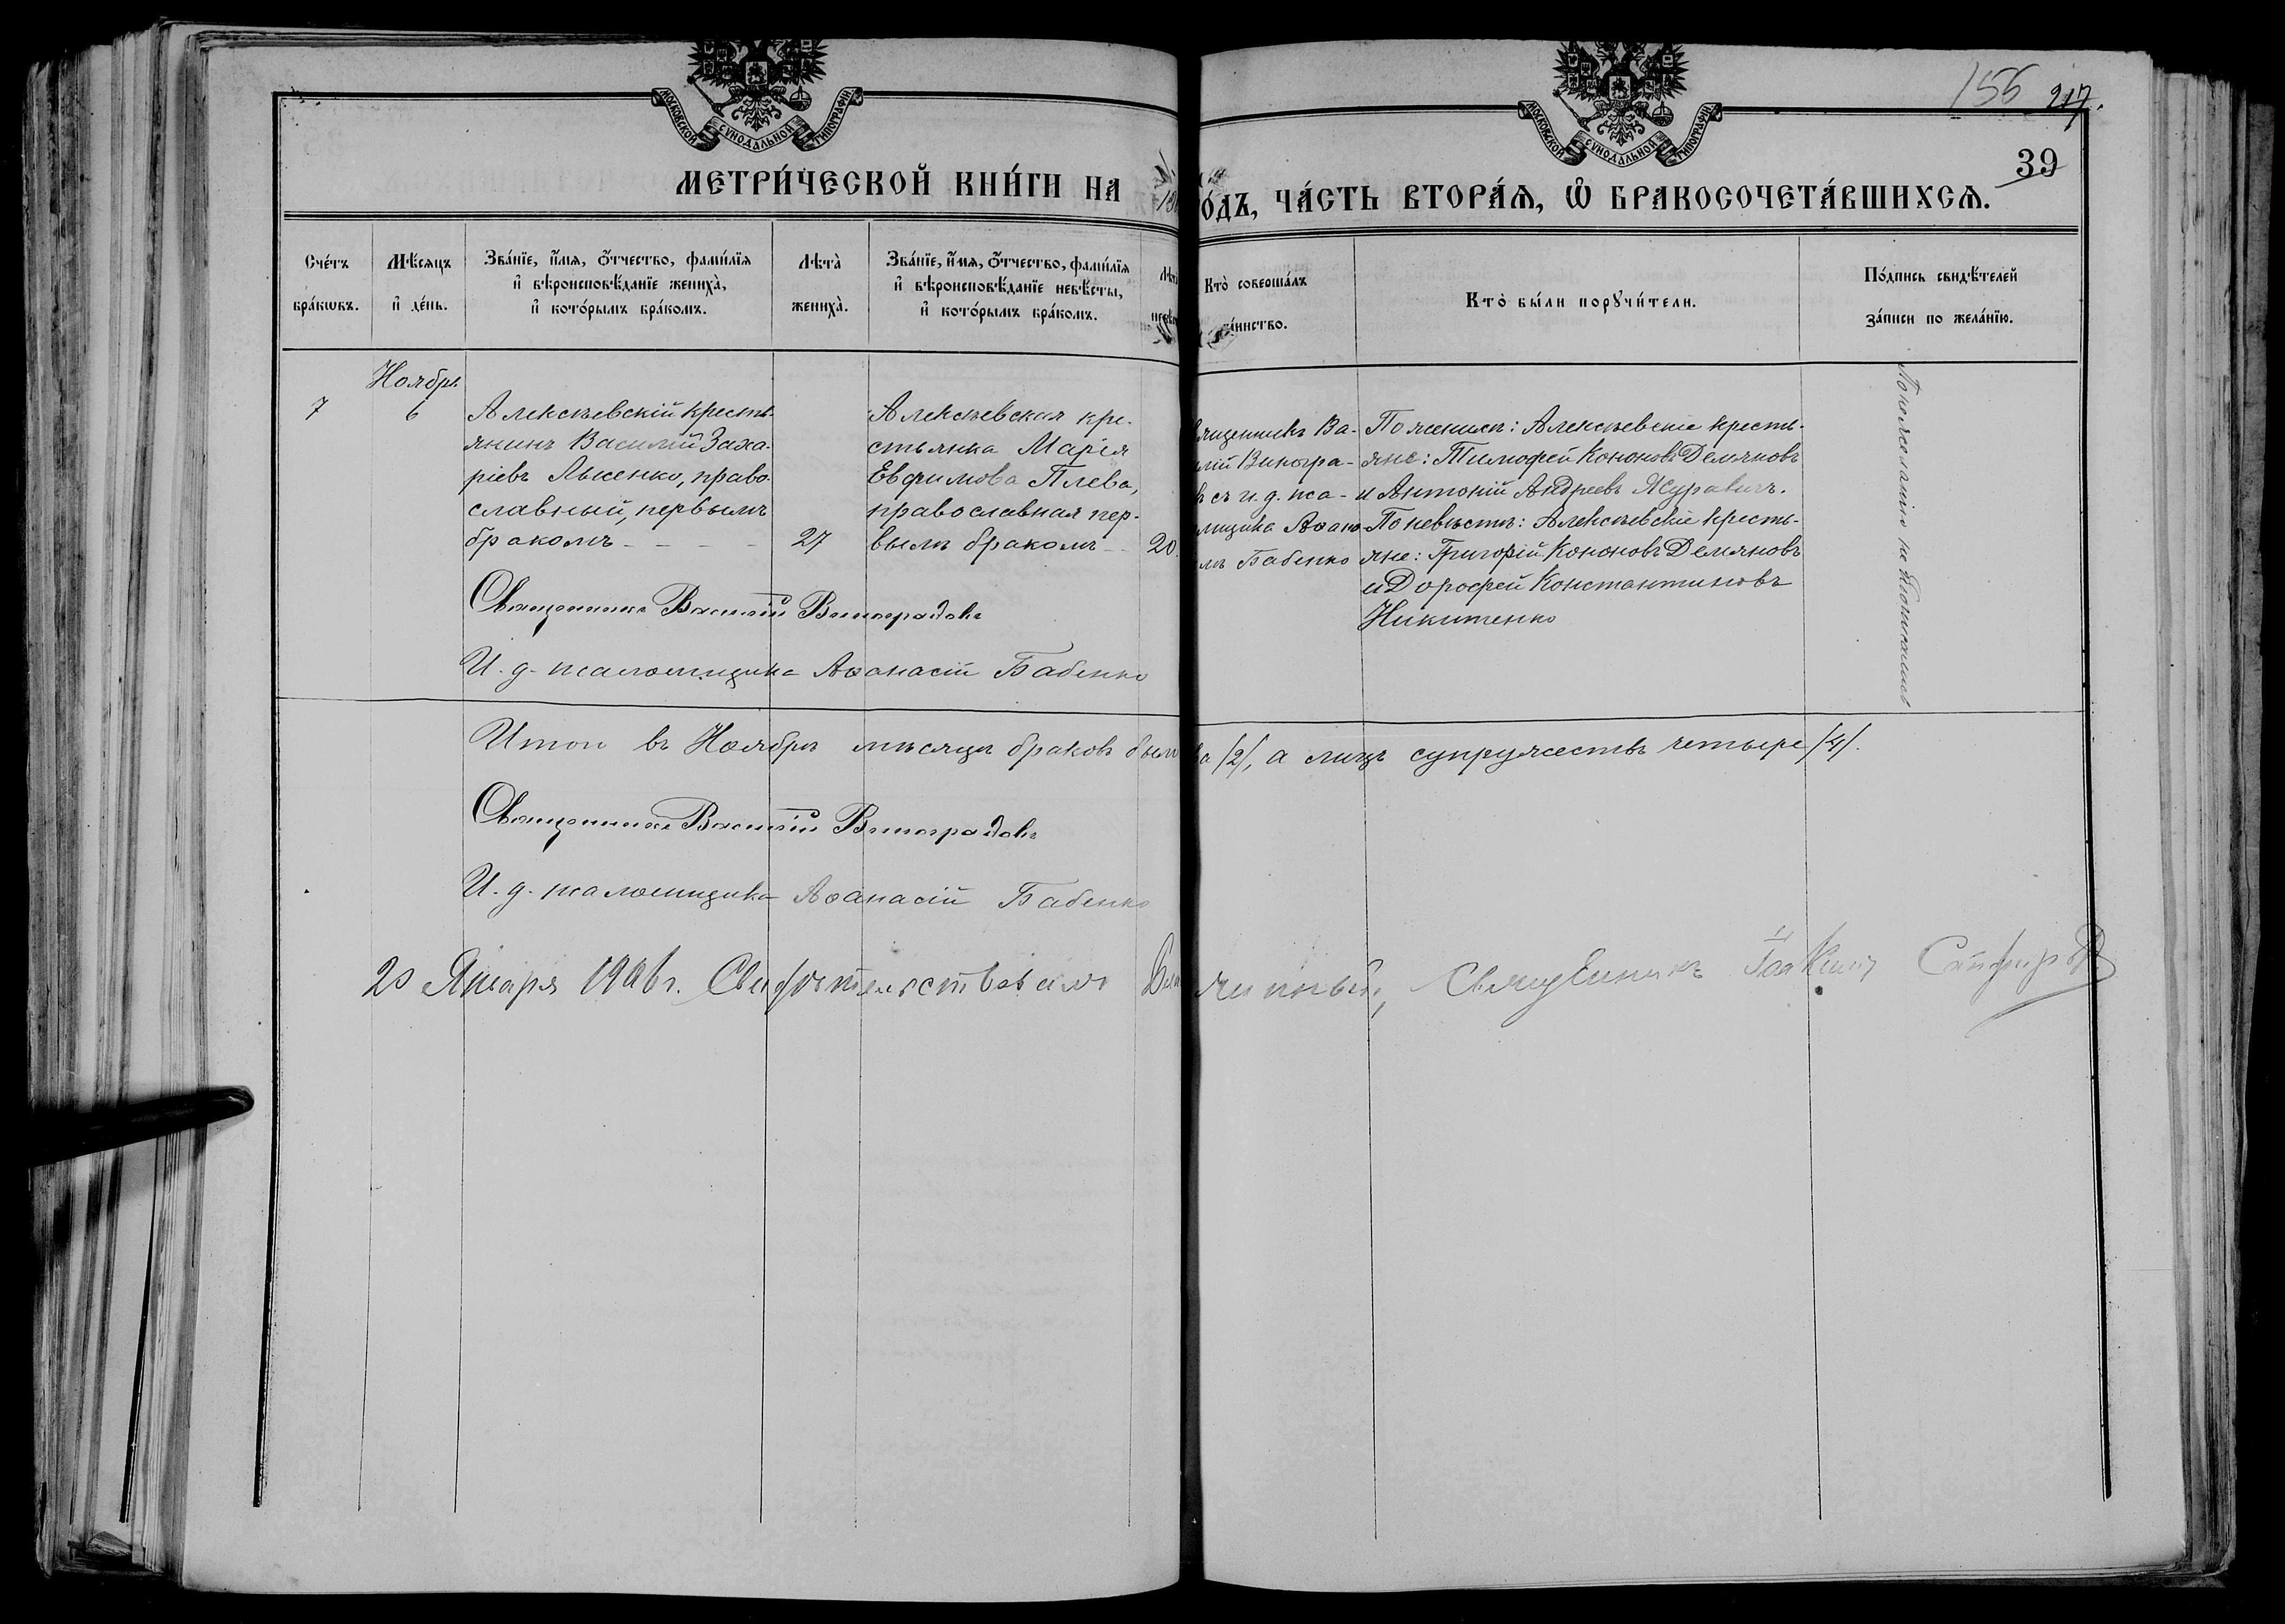 МОСКОВСКОЙ СѴНОДАЛЬНОЙ ТИПОГРАФІИ
МОСКОВСКОЙ СѴНОДАЛЬНОЙ ТИПОГРАФІИ
156 217.
39
МЕТРИ́ЧЕСКОЙ КНИ́ГИ НА
О́ДЪ, ЧА́СТЬ ВТОРА́Я, Ѿ БРАКОСОЧЕТА́ВШИХСЯ.
Сче́тъ бра́кѡвъ.
Мѣ́сяцъ и҆ де́нь.
Зва́нїе, и҆́мя, ѻ҆́тчество, фами́лїя
и҆ вѣроисповѣ́данїе жениха̀,
и҆ кото́рымъ бра́комъ.
Лѣта̀ жениха̀.
Зва́нїе, и҆́мя, ѻ҆́тчество, фами́лїя
и҆ вѣроисповѣ́данїе невѣ́сты,
и҆ кото́рымъ бра́комъ.
Кто̀ соверша́лъ
а́инство.
Кто̀ бы́ли порꙋчи́тели.
По́дпись свидѣ́телей
за́писи по жела́нїю.
Ноябрь
7
6
Алексѣевскій кресть-
янинъ Василій Заха-
ріевъ Лысенко, право-
славный, первымъ
бракомъ - - - -
27
Алексѣевская кре-
стьянка Марія
Евфимова Плева,
православная пер-
вымъ бракомъ - -
20.
вященникъ Ва-
илій Виногра-
ъ съ и. д. пса-
мщика Аѳана-
мъ Бабенко
По женихѣ: Алексѣевскіе кресть-
яне: Тимофей Кононовъ Демяновъ
и Антоній Андреевъ Журавичъ.
По невѣстѣ: Алексѣевскіе кресть-
яне: Григорій Кононовъ Демяновъ
и Дорофей Константиновъ
Никитенко
Священникъ Василій Виноградовъ
И. д. псаломщика Аѳанасій Бабенко
Итого въ Ноябрѣ мѣсяцѣ браковъ было
ва /2/, а лицъ супружествъ четыре /4/.
Священникъ Василій Виноградовъ
И. д. псаломщика Аѳанасій Бабенко
20 Января 1906 г. Свидѣтельствовалъ Бла
чинный, Священникъ